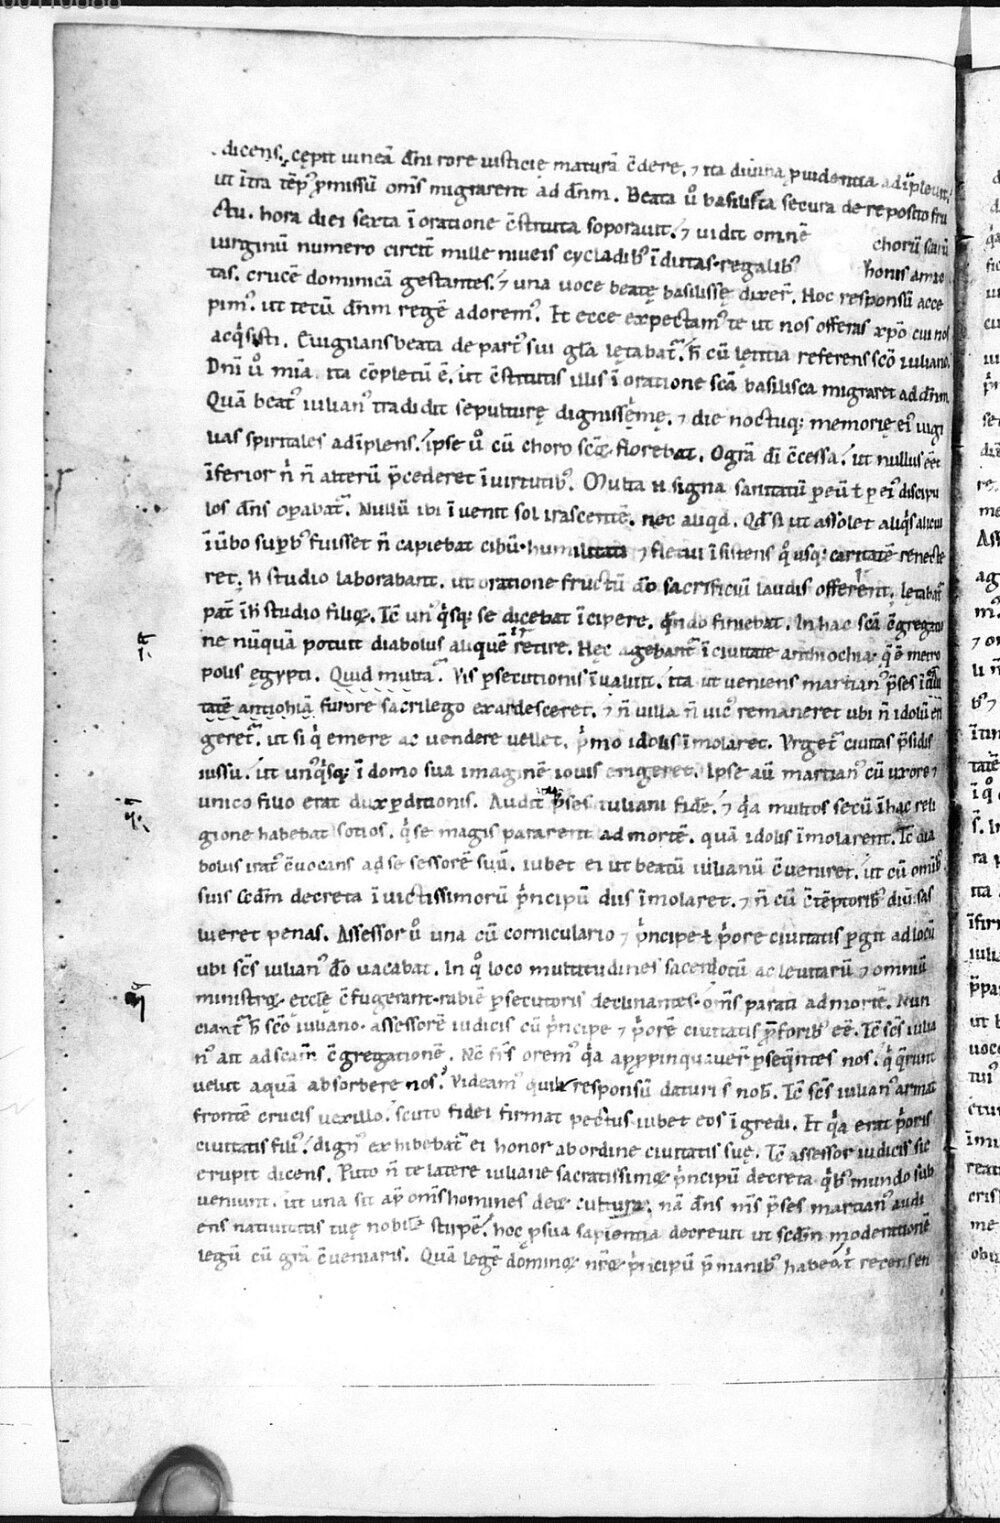 dicens. cępit uineā dn̄i rore iusticię maturā c̄dere. ⁊ ita diuina ꝓuidentia adīpleuit.
ut ītra tēp' ꝓmissū om̄s migrarent ad dn̄m. Beata u͛o basilissa secura de reposito fru
ctu. hora diei sexta ī oratione c̄stituta soporauit. ⁊ uidit omnē chorū scārū
uirginū numero circit̄ mille niueis cycladib' īdutas. regalib' honis amic
tas. crucē dominicā gestantes. ⁊ una uoce beatę basilissę dixer̄. Hoc responsū acce
pim'. ut tecū dn̄m regē adorem'. Et ecce expectam' te ut nos offeras xp̄o cui nos
acq̇sisti. Euigilans beata de part' sui gl̄a lętabat̄. h̄ cū lętitia referens scō iuliano.
Dn̄i u͛o mīa ita cōpletū ē. ut c̄stitutis illis ī oratione scā basilisca migraret ad dn̄m.
Quā beat' iulian' tradidit sepulturę dignissęmę. ⁊ die noctuq; memorię ei' uigi
lias spiritales adīplens. ipse u͛o cū choro scōꝝ florebat. Oḡra di c̄cessa. ut nullus eēt
īferior n̄ n̄ alterū p̄cederet ī uirtutib'. Multa ū signa sanitatū ꝑ eū ł ꝑ ei' discipu
los dn̄s oꝑabat̄. Nullū ibi īuenit sol irascentē. nec aliqd. Qd̄ si ut assolet aliq̇s alicui
ī ūbo suꝑb' fuisset n̄ capiebat cibū. humilitata ⁊ fletui īsistens q̊usq; caritatē renecte
ret. h̄ studio laborabant. ut oratione fructū dō sacrificiū laudis offerent. lętabat̄
pat̄ ī h̄ studio filioꝝ. Tc̄ un'q̇sq; se dicebat īcipere. qn̄do finiebat. In hac scā c̄gregatio
ne nūquā potuit diabolus aliquē retire. Hęc agebant̄ ī ciuitate antiochia. q̄ ē metro
polis ęgypti. Quid multa. Vis ꝑsecutionis īualuit. ita ut ueniens martian' p̄ses ī ciui
tatē antiochiā furore sacrilego exardesceret. ⁊ n̄ uilla n̄ uic' remaneret ubi n̄ idolū eri
geret̄. ut si q̇ emere ac uendere uellet. ṗmo idolis īmolaret. Vrget̄ ciuitas p̄sidis
iussu. ut un'q̇sq; ī domo sua imaginē iouis erigeret. Ipse aū martian' cū uxore ⁊
unico filio erat dux ꝑditionis. Audit p̄ses iuliani fidē. ⁊ q̇a multos secū ī hac reli
gione habebat sotios. q̇ se magis pararent ad mortē. quā idolis īmolarent. Tc̄ dia
bolus irat' c̄uocans ad se sessorē suū. iubet ei ut beatū iulianū c̄ueniret. ut cū omīb'
suis scdm̄ decreta īuictissimorū ṗncipū diis īmolaret. ⁊ n̄ cū c̄tēptorib' diuīsas
lueret penas. Assessor u͛o una cū corniculario ⁊ ṗncipe ł ṗore ciuitatis ꝑgit ad locū
ubi scs̄ iulian' dō uacabat. In q̊ loco multitudines sacerdotū ac leuitarū ⁊ omniū
ministroꝝ ecclę c̄fugerant. rabiē ꝑsecutoris declinantes. om̄s parati ad mortē. Nun
ciant̄ h̄ scō iuliano. assessorē iudicis cū ṗncipe ⁊ ṗorē ciuitatis p̄ forib' eē. Tc̄ scs̄ iulia
n' ait ad scām c̄gregationē. Nc̄ frs̄ orem' q̇a appꝓpinquauer̄ ꝑseq̄ntes nos. q̇ q̄runt
uelut aquā absorbere nos. Videam' quid responsū daturi s̄ nob̄. Tc̄ scs̄ iulian' armat
frontē crucis uexillo. scuto fidei firmat pectus iubet eos īgredi. Et q̇a erat ṗoris
ciuitatis fili'. dign' exhibebat̄ ei honor ab ordine ciuitatis suę. Tc̄ assessor iudicis sic
erupit dicens. Puto n̄ te latere iuliane sacratissimoꝝ ṗncipū decreta q̇b' mundo sub
ueniunt. ut una sit ap̄ om̄s homines deoꝝ cultura. nā dn̄s nr̄s p̄ses martian' audi
ens natiuitatis tuę nobilē stirpē. hoc ꝑ sua sapientia decreuit ut scdm̄ moderationē
legū cū grā c̄ueniaris. Quā legē dominoꝝ nr̄oꝝ ṗncipū p̄ manib' habeat̄ recensen